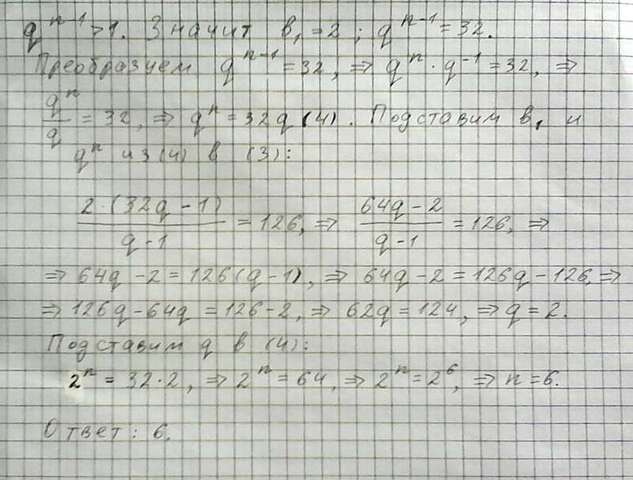 qⁿ⁻¹>1. Значит в₁=2; qⁿ⁻¹=32.
Преобразуем qⁿ⁻¹=32, ⇒ qⁿ·q⁻¹=32, ⇒
qⁿ/q = 32, ⇒ qⁿ=32q (4). Подставим в₁ и
qⁿ из (4) в (3):
2·(32q-1)/(q-1) = 126, ⇒ (64q-2)/(q-1) = 126, ⇒
⇒ 64q-2=126(q-1), ⇒ 64q-2=126q-126, ⇒
⇒ 126q-64q=126-2, ⇒ 62q=124, ⇒ q=2.
Подставим q в (4):
2ⁿ=32·2, ⇒ 2ⁿ=64, ⇒ 2ⁿ=2⁶, ⇒ n=6.
Ответ: 6.